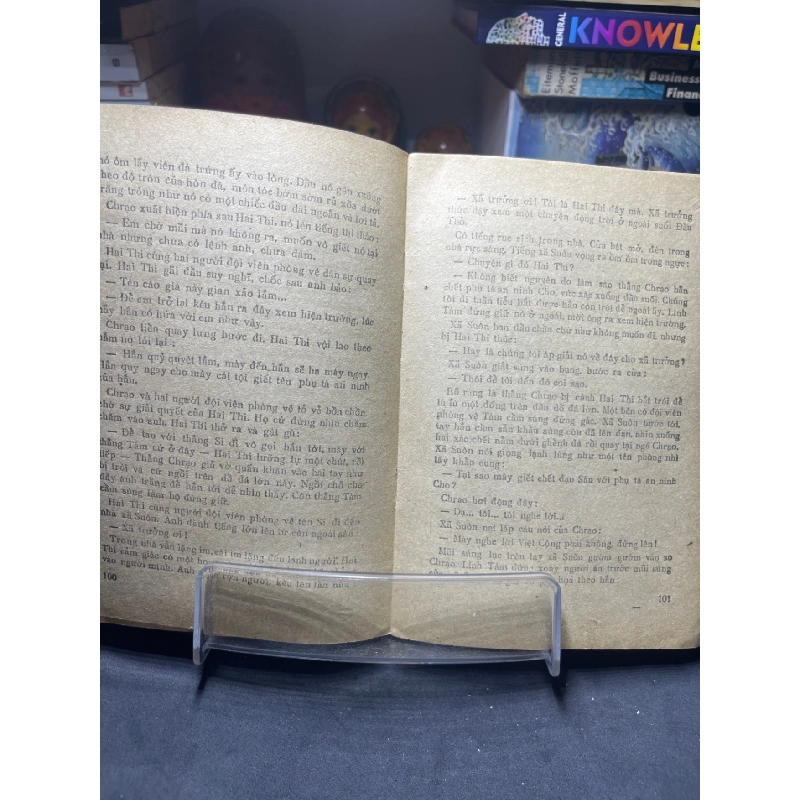 GENERAL KNOWLE
Eitem
Stone
Moffi
Business
Finan
nó ôm lấy viên đá trứng ấy vào lòng. Đầu nó gục xuống
theo độ tròn của hòn đá, món tóc bờm sờm rũ xõa dưới
răng trông như nó có một chiếc đầu dài ngoằn và lơi tả.
Chrạo xuất hiện phía sau Hai Thi, nó lên tiếng thì thào:
— Em chờ mãi mà nó không ra, muốn vô giết nó tại
nhà nhưng chưa có lệnh anh, chưa dám.
Hai Thi cùng hai người đội viên phòng vệ dân sự quay
lại. Hai Thi gãi đầu suy nghĩ, chốc sau anh bảo:
— Tên cáo già này gian xảo lắm...
— Để em trở lại kêu hắn ra đây xem hiện trường, lúc
nãy hắn có hứa với em như vậy.
Chrạo liền quay lưng bước đi. Hai Thi vội lao theo
nắm nó lôi lại:
— Hắn quỷ quyệt lắm, mày đến hắn sẽ hạ mày ngay.
Hắn quy ngay cho mày cái tội giết tên phụ tá an ninh
của hắn.
Chrạo và hai người đội viên phòng vệ tỏ vẻ bồn chồn
chờ sự giải quyết của Hai Thi. Họ cứ đứng nhìn chăm
chăm vào anh. Hai Thi thở ra và gãi gù:
— Để tao với thằng Si đi vô gọi hắn tới, mày với
thằng Tám cứ ở đây — Hai Thi lưỡng lự một chút, rồi
tiếp — Thằng Chrạo giả vờ quấn khăn vào hai tay như
bị trói và cứ ngồi trên đá đá lớn này. Ngồi chỗ chỗ
đầy ánh trăng để hắn tới dễ nhìn thấy. Còn thằng Tám
cầm súng làm bộ đứng giữ.
Hai Thi cùng người đội viên phòng vệ tên Si đi đến
nhà xã Suôn. Anh đánh tiếng lớn lên từ cửa ngoài sân:
— Xã trưởng ơi!
Trong nhà vẫn lặng im, cái im lặng đến lạnh người. Hai
Thi cảm giác có một họ
vào người mình. Anh rợn người, kêu lên lần nữa:
100
— Xã trưởng ơi! Tôi là Hai Thi đây mà. Xã trưởng
thức dậy xem một chuyện động trời ở ngoài suối Đầu
Thỏ.
Có tiếng rục rịch trong nhà. Cửa bật mở, đèn trong
nhà rực sáng. Tiếng xã Suôn vọng ra ồm ồm trong ngực:
— Chuyện gì đó Hai Thi?
— Không biết nguyên do làm sao thằng Chrạo bắn
chết phụ tá an ninh Cho, vức xác xuống đầu mối. Chúng
tôi đi tuần tiễu bắt được hắn còn trói để ngoài ấy. Lính
Tám đứng giữ nó ở ngoài, mời ông ra xem hiện trường.
Xã Suôn ban đầu chần chừ như không muốn đi, nhưng
bị Hai Thi thúc:
— Hay là chúng tôi áp giải nó về đây cho xã trưởng?
Xã Suôn giắt súng vào bụng, bước ra cửa:
— Thôi để tôi đến đó coi sao.
Rõ ràng là thằng Chrạo bị cánh Hai Thi bắt trói để
lù lù một đống trên đầu đồ đá lớn. Một bên có đội viên
phòng vệ Tám cầm súng đứng gác. Xã Suôn bước tới,
tay hắn lăm săm khẩu súng còn đã lên đạn, nhìn xuống
hai xác chết nằm dưới ghềnh đá rồi quay lại ngó Chrạo,
Xã Suôn nói giọng lạnh lùng như một tên phòng nhì
lấy khẩu cung:
— Tại sao mày giết chết đạo Săn với phụ tá an ninh
Cho?
Chrạo hơi động đậy:
— Dạ... tôi... tôi nghe lời...
Xã Suôn nói lấp câu nói của Chrạo:
— Mày nghe lời Việt Cộng phải không, đứng lên!
Mũi súng lục trên tay xã Suôn gườm gườm vào so
Chrạo. Lính Tám đứng xoay người ăn trước mũi súng
họa theo hắn.
101